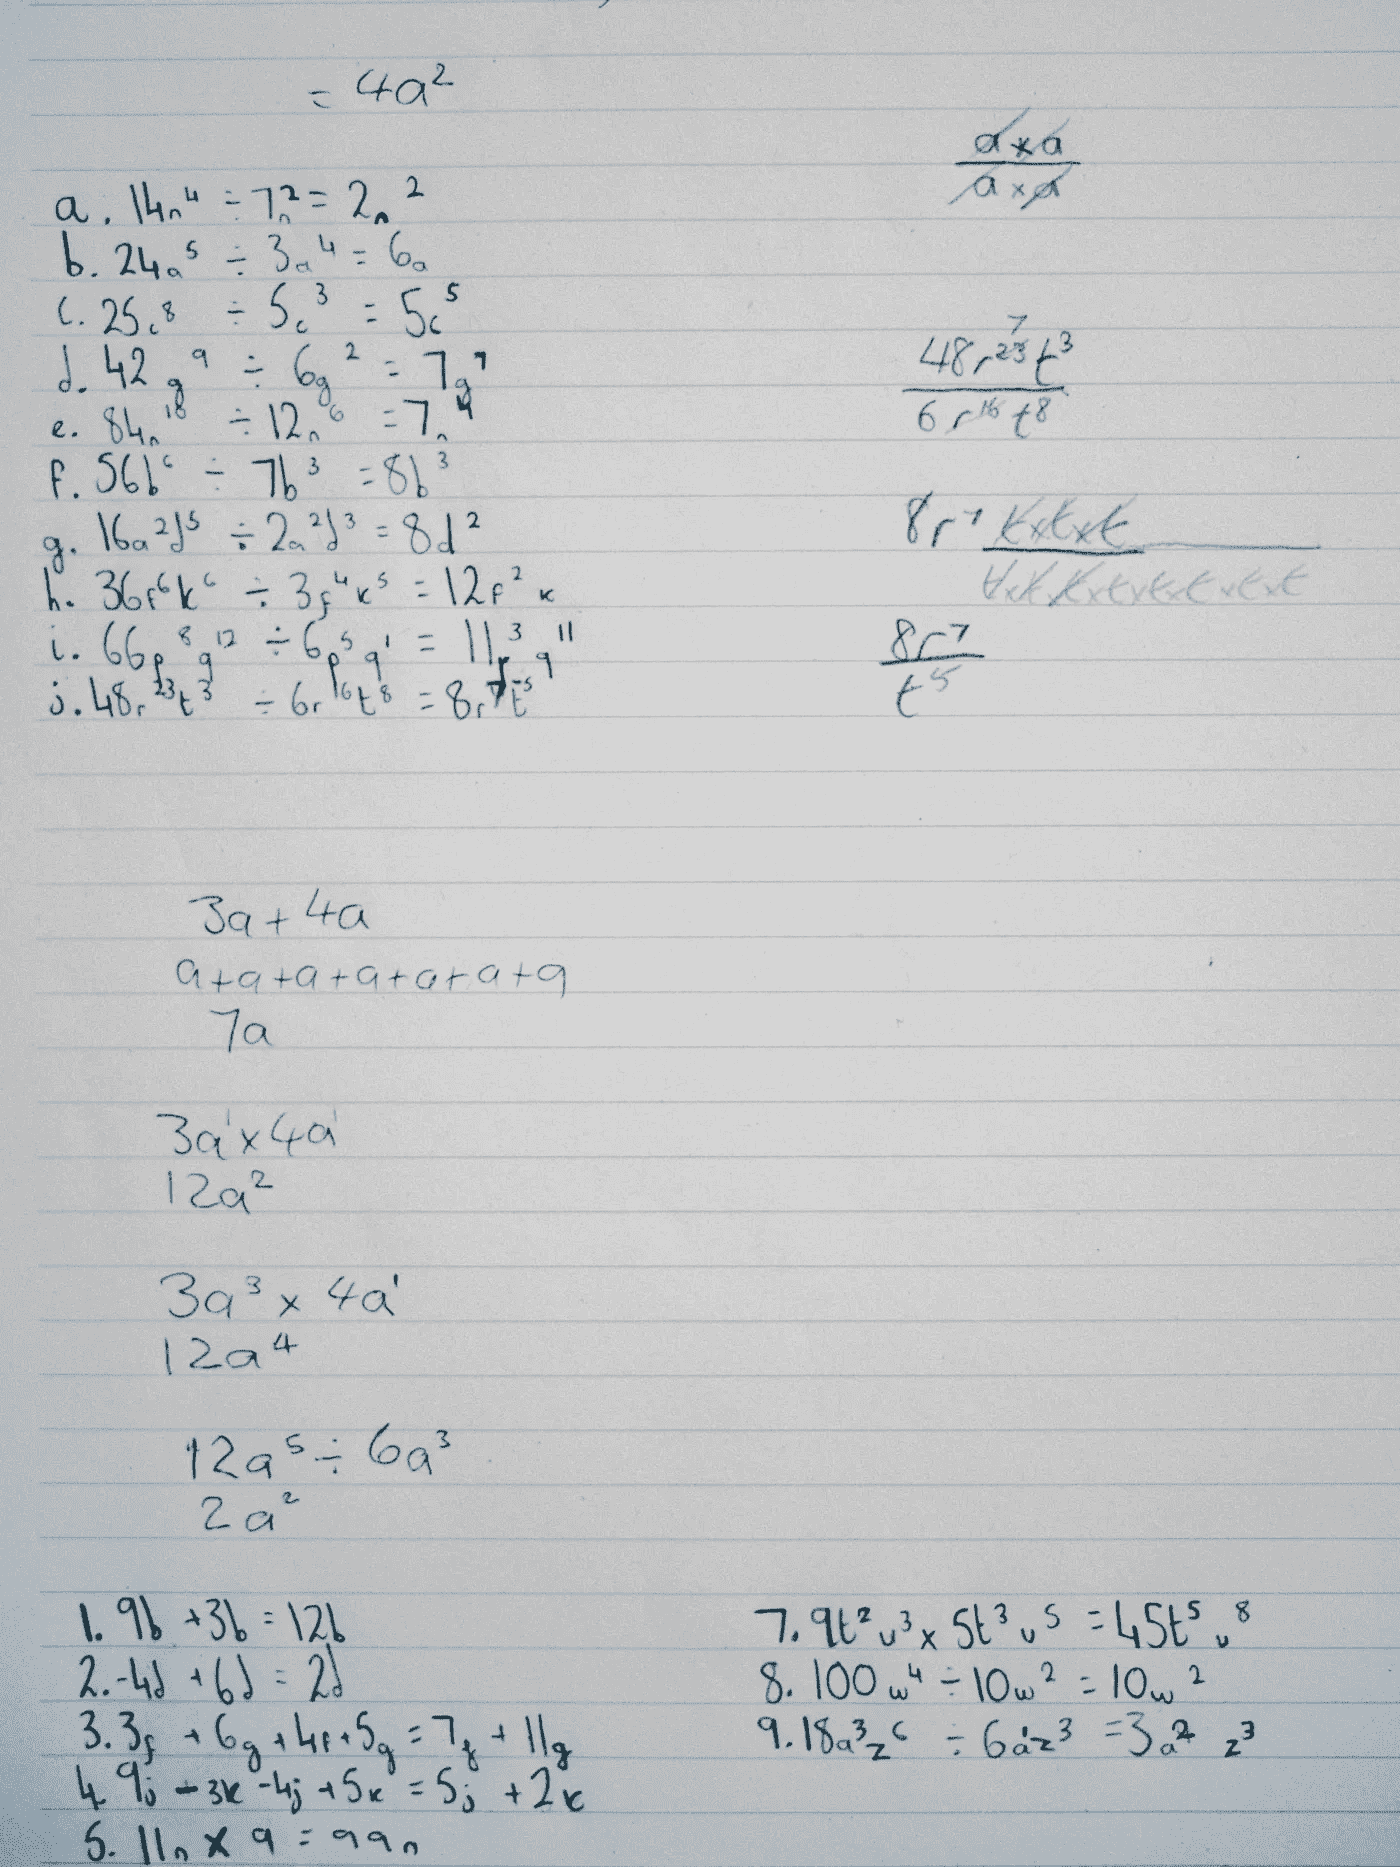 = 4a²
a × a
a × a
a. 14n⁴ ÷ 7n² = 2n²
b. 24a⁵ ÷ 3a⁴ = 6a
c. 25c⁸ ÷ 5c³ = 5c⁵
d. 42g⁹ ÷ 6g² = 7g⁷
e. 84n¹⁰ ÷ 12n⁶ = 7n⁴
f. 56b⁶ ÷ 7b³ = 8b³
g. 16a²d⁵ ÷ 2a²d³ = 8d²
h. 36f⁶k⁶ ÷ 3f⁴k⁵ = 12f²k
i. 66p⁸q¹² ÷ 6p⁵q¹ = 11p³q¹¹
j. 48r²³t³ ÷ 6r¹⁶t⁸ = 8r⁷t⁻⁵
7
48r²³t³
6r¹⁶t⁸
8r⁷ t×t×t
t×t×t×t×t×t×t×t
8r⁷
t⁵
3a + 4a
a+a+a+a+a+a+a
7a
3a¹ × 4a¹
12a²
3a³ × 4a¹
12a⁴
12a⁵ ÷ 6a³
2a²
1. 9b + 3b = 12b
2. -4d + 6d = 2d
3. 3f + 6g + 4f + 5g = 7f + 11g
4. 9j - 3k - 4j + 5k = 5j + 2k
5. 11n × 9 = 99n
7. 9t²v³ × 5t³v⁵ = 45t⁵v⁸
8. 100w⁴ ÷ 10w² = 10w²
9. 18a³z⁶ ÷ 6a¹z³ = 3a²z³